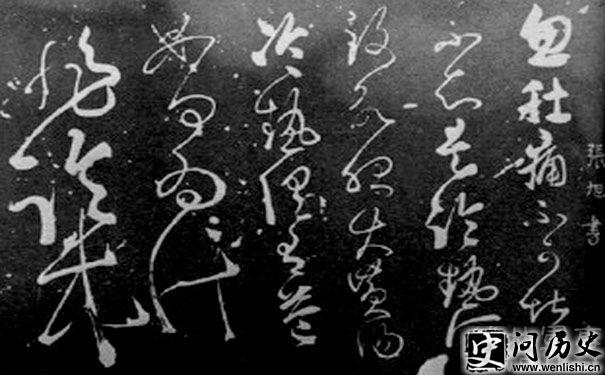 張旭書
忽肚痛不可堪
不知是冷熱所
致欲服大黃湯
冷熱俱有益
如何為計
非臨床
问历史
www.wenlishi.cn